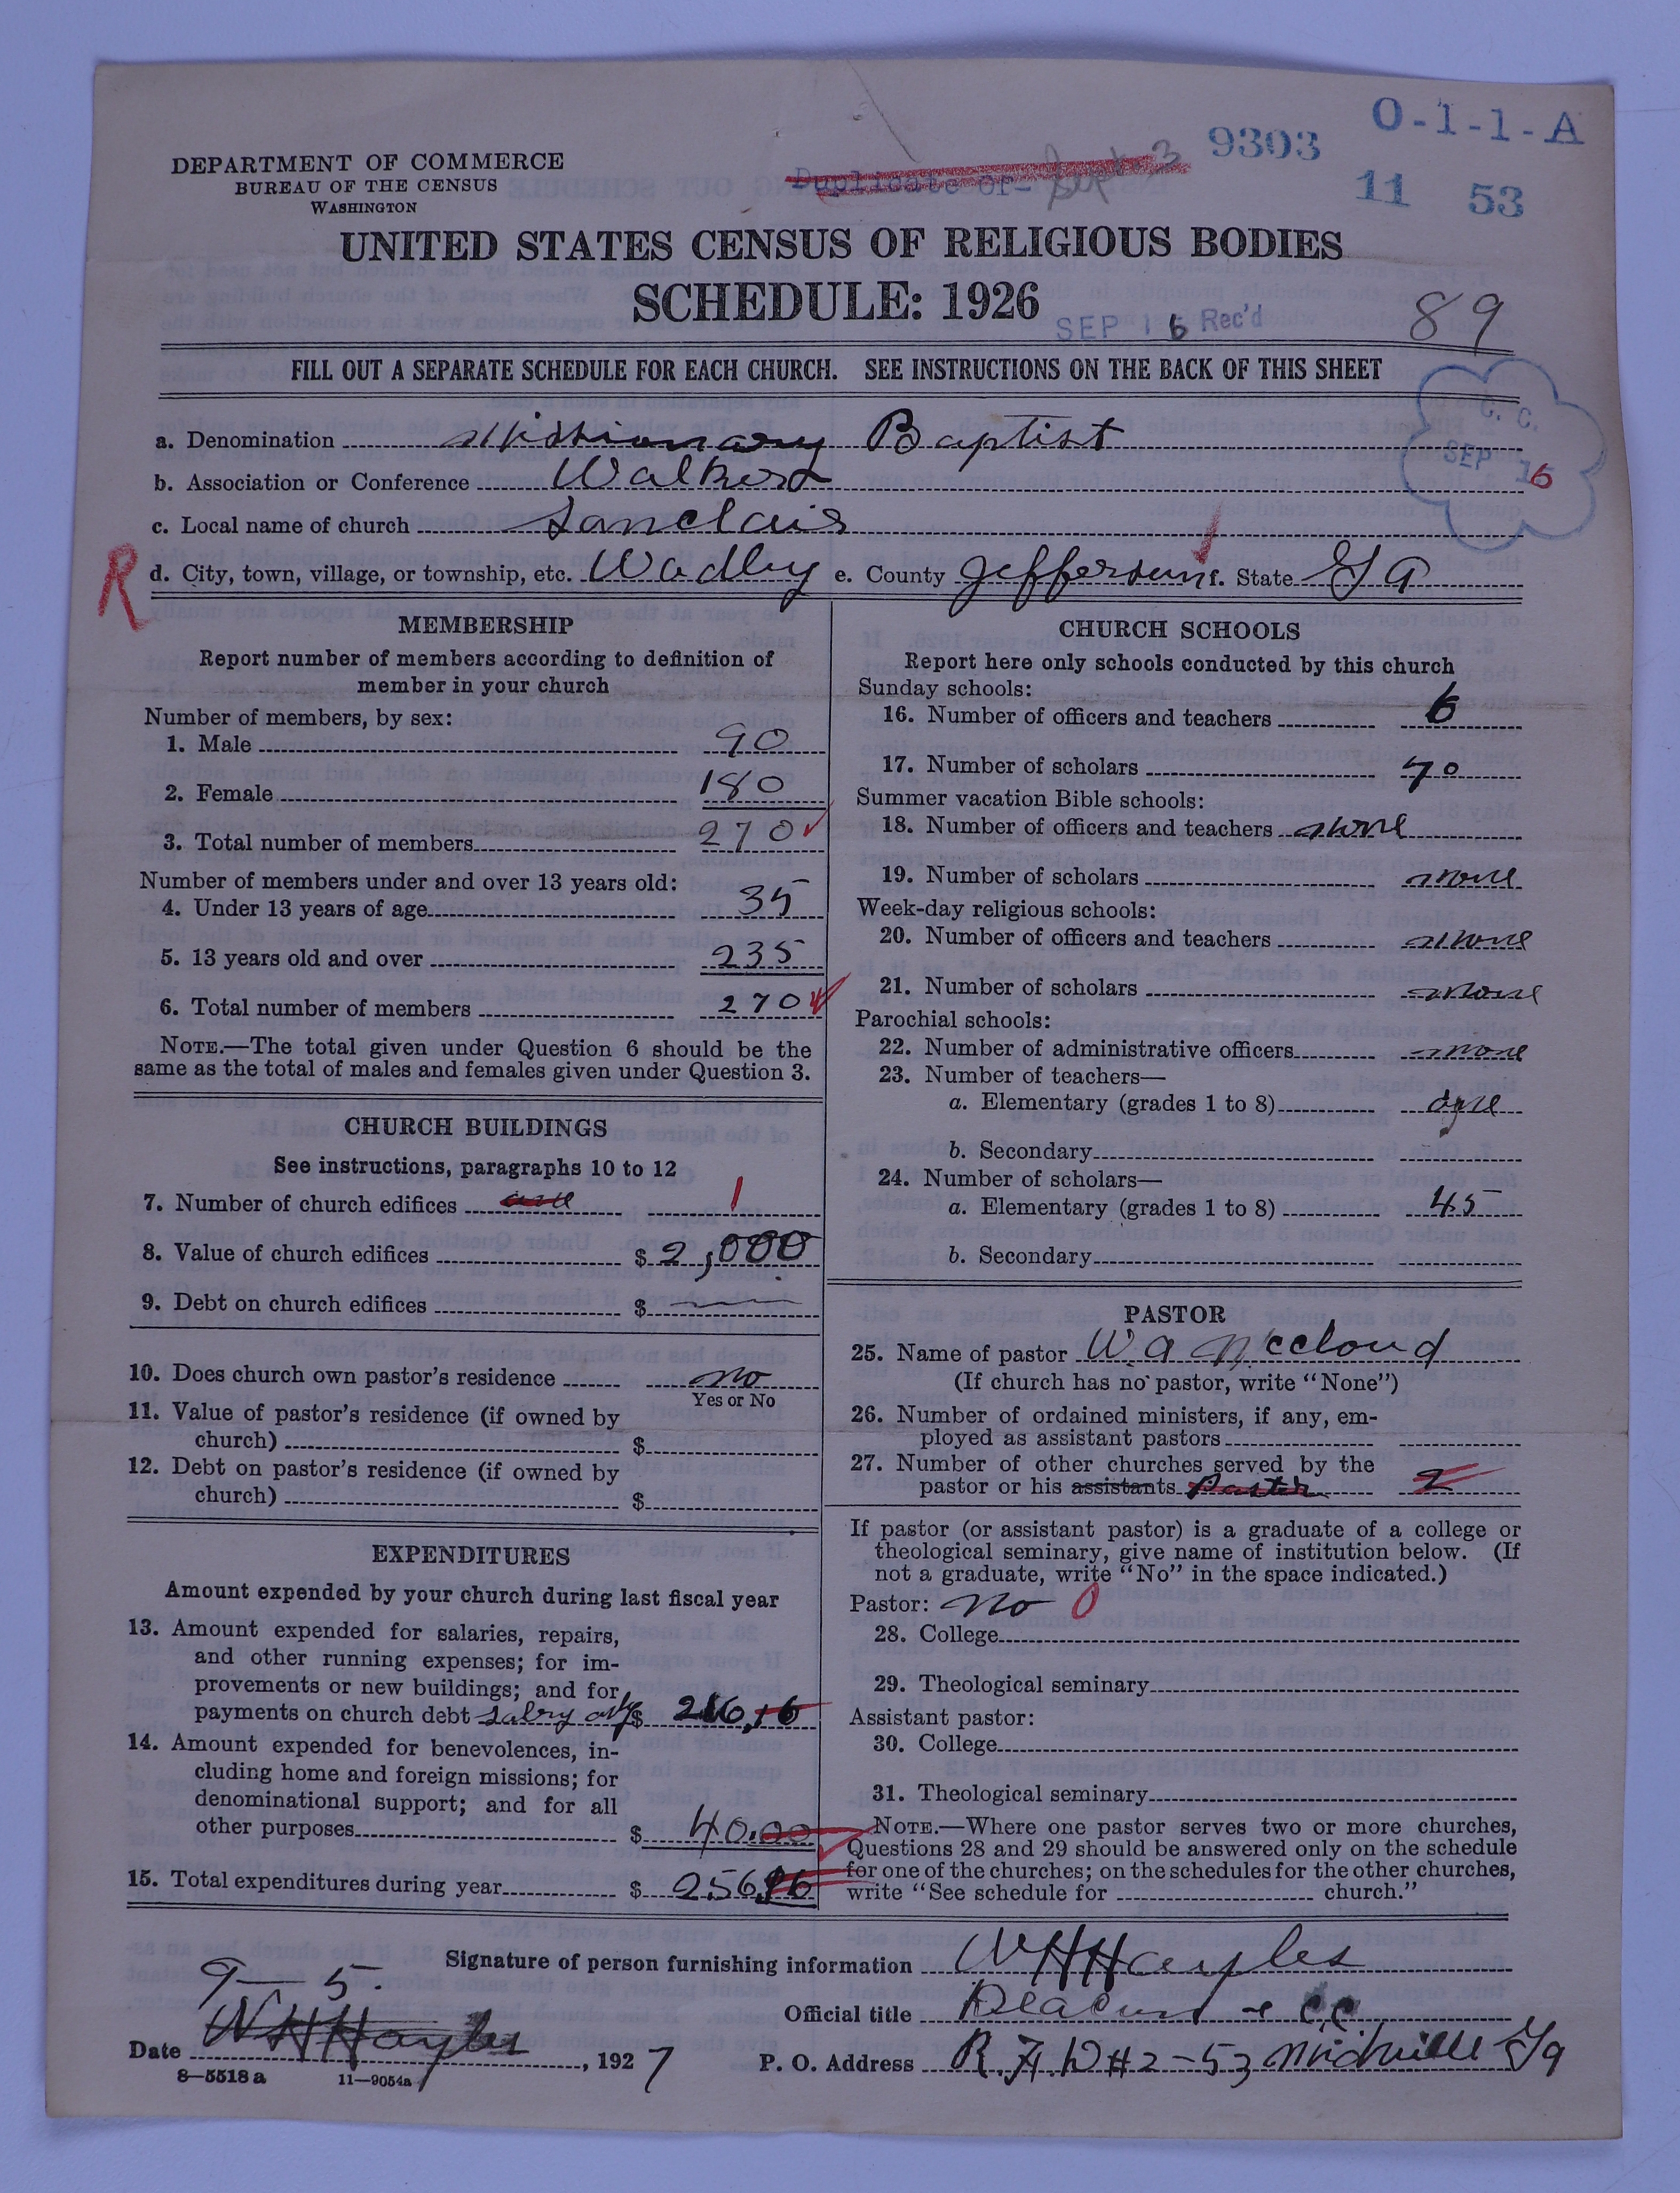 DEPARTMENT OF COMMERCE
BUREAU OF THE CENSUS
WASHINGTON
Duplicate Of-
9303
O-1-1-A
11 53
UNITED STATES CENSUS OF RELIGIOUS BODIES
SCHEDULE: 1926
SEP 16 Rec'd
89
FILL OUT A SEPARATE SCHEDULE FOR EACH CHURCH. SEE INSTRUCTIONS ON THE BACK OF THIS SHEET
C. C.
SEP 16
a. Denomination Missionary Baptist
b. Association or Conference Walkers
c. Local name of church Sanclair
R
d. City, town, village, or township, etc. Wadley e. County Jefferson f. State Ga
MEMBERSHIP
Report number of members according to definition of
member in your church
Number of members, by sex:
1. Male 90
2. Female 180
3. Total number of members 270
Number of members under and over 13 years old:
4. Under 13 years of age 35
5. 13 years old and over 235
6. Total number of members 270
NOTE.—The total given under Question 6 should be the
same as the total of males and females given under Question 3.
CHURCH BUILDINGS
See instructions, paragraphs 10 to 12
7. Number of church edifices one 1
8. Value of church edifices $ 2,000
9. Debt on church edifices $ —
10. Does church own pastor's residence no
Yes or No
11. Value of pastor's residence (if owned by
church) $
12. Debt on pastor's residence (if owned by
church) $
EXPENDITURES
Amount expended by your church during last fiscal year
13. Amount expended for salaries, repairs,
and other running expenses; for im-
provements or new buildings; and for
payments on church debt salry $ 216.16
14. Amount expended for benevolences, in-
cluding home and foreign missions; for
denominational support; and for all
other purposes $ 40.00
15. Total expenditures during year $ 256.16
CHURCH SCHOOLS
Report here only schools conducted by this church
Sunday schools:
16. Number of officers and teachers 6
17. Number of scholars 70
Summer vacation Bible schools:
18. Number of officers and teachers none
19. Number of scholars none
Week-day religious schools:
20. Number of officers and teachers none
21. Number of scholars none
Parochial schools:
22. Number of administrative officers none
23. Number of teachers—
a. Elementary (grades 1 to 8) one
b. Secondary
24. Number of scholars—
a. Elementary (grades 1 to 8) 45
b. Secondary
PASTOR
25. Name of pastor W. a Mccloud
(If church has no pastor, write "None")
26. Number of ordained ministers, if any, em-
ployed as assistant pastors
27. Number of other churches served by the
pastor or his assistants Pastor 2
If pastor (or assistant pastor) is a graduate of a college or
theological seminary, give name of institution below. (If
not a graduate, write "No" in the space indicated.)
Pastor: no 0
28. College
29. Theological seminary
Assistant pastor:
30. College
31. Theological seminary
NOTE.—Where one pastor serves two or more churches,
Questions 28 and 29 should be answered only on the schedule
for one of the churches; on the schedules for the other churches,
write "See schedule for church."
Signature of person furnishing information W H Hayles
Official title Deacon + CC
9—5.
Date W H Hayles, 1927
P. O. Address R. F. D #2-53 Midville Ga
8—5518 a 11—9054a